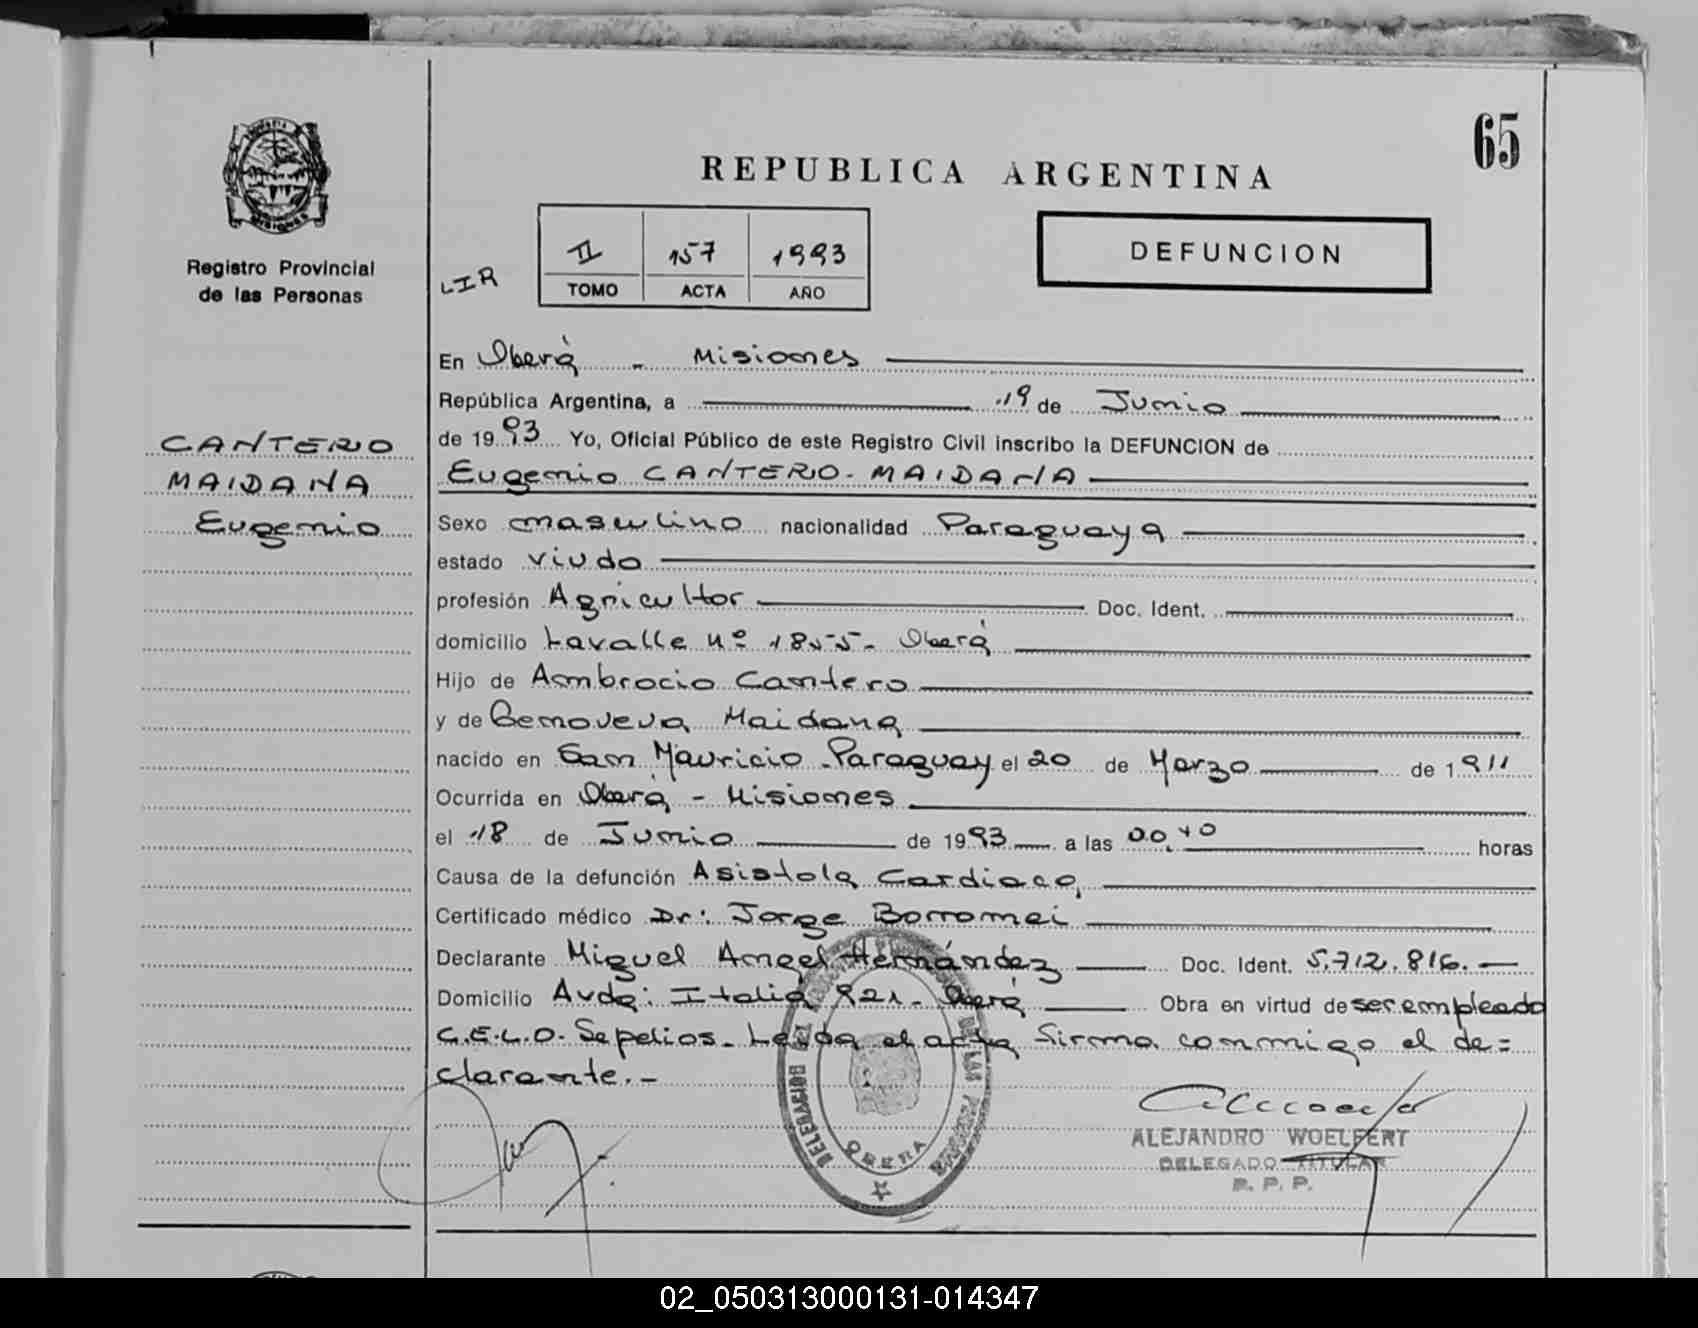 65
REPUBLICA ARGENTINA
MISIONES
Registro Provincial
de las Personas
LIR
II 157 1993
TOMO ACTA AÑO
DEFUNCION
CANTERO
MAIDANA
Eugenio
En Oberá - Misiones
República Argentina, a 19 de Junio
de 1993 Yo, Oficial Público de este Registro Civil inscribo la DEFUNCION de
Eugenio CANTERO-MAIDANA
Sexo masculino nacionalidad Paraguaya
estado viudo
profesión Agricultor Doc. Ident.
domicilio Lavalle Nº 1855- Oberá
Hijo de Ambrocio Cantero
y de Genoveva Maidana
nacido en San Mauricio-Paraguay el 20 de Marzo de 1911
Ocurrida en Oberá - Misiones
el 18 de Junio de 1993 a las 00,40 horas
Causa de la defunción Asistola Cardiaca
Certificado médico Dr: Jorge Borromei
Declarante Miguel Angel Hernández Doc. Ident. 5.712.816.-
Domicilio Avda: Italia 821- Oberá Obra en virtud de ser empleado
C.E.L.O. Sepelios- Leída el acta firma conmigo el de=
clarante.-
DELEGACION DEL DE LAS PERSONAS
OBERA
ALEJANDRO WOELFERT
DELEGADO TITULAR
R. P. P.
02_050313000131-014347